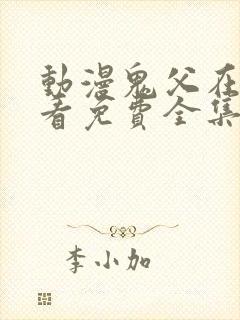 動漫鬼父在
看免費全集
李小加